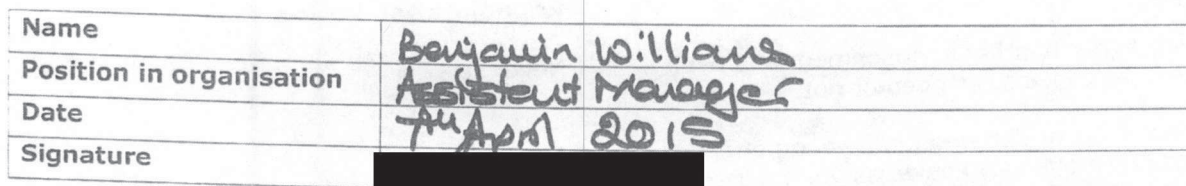 Name Benjamin Williams
Position in organisation Assistant Manager
Date 7th April 2015
Signature